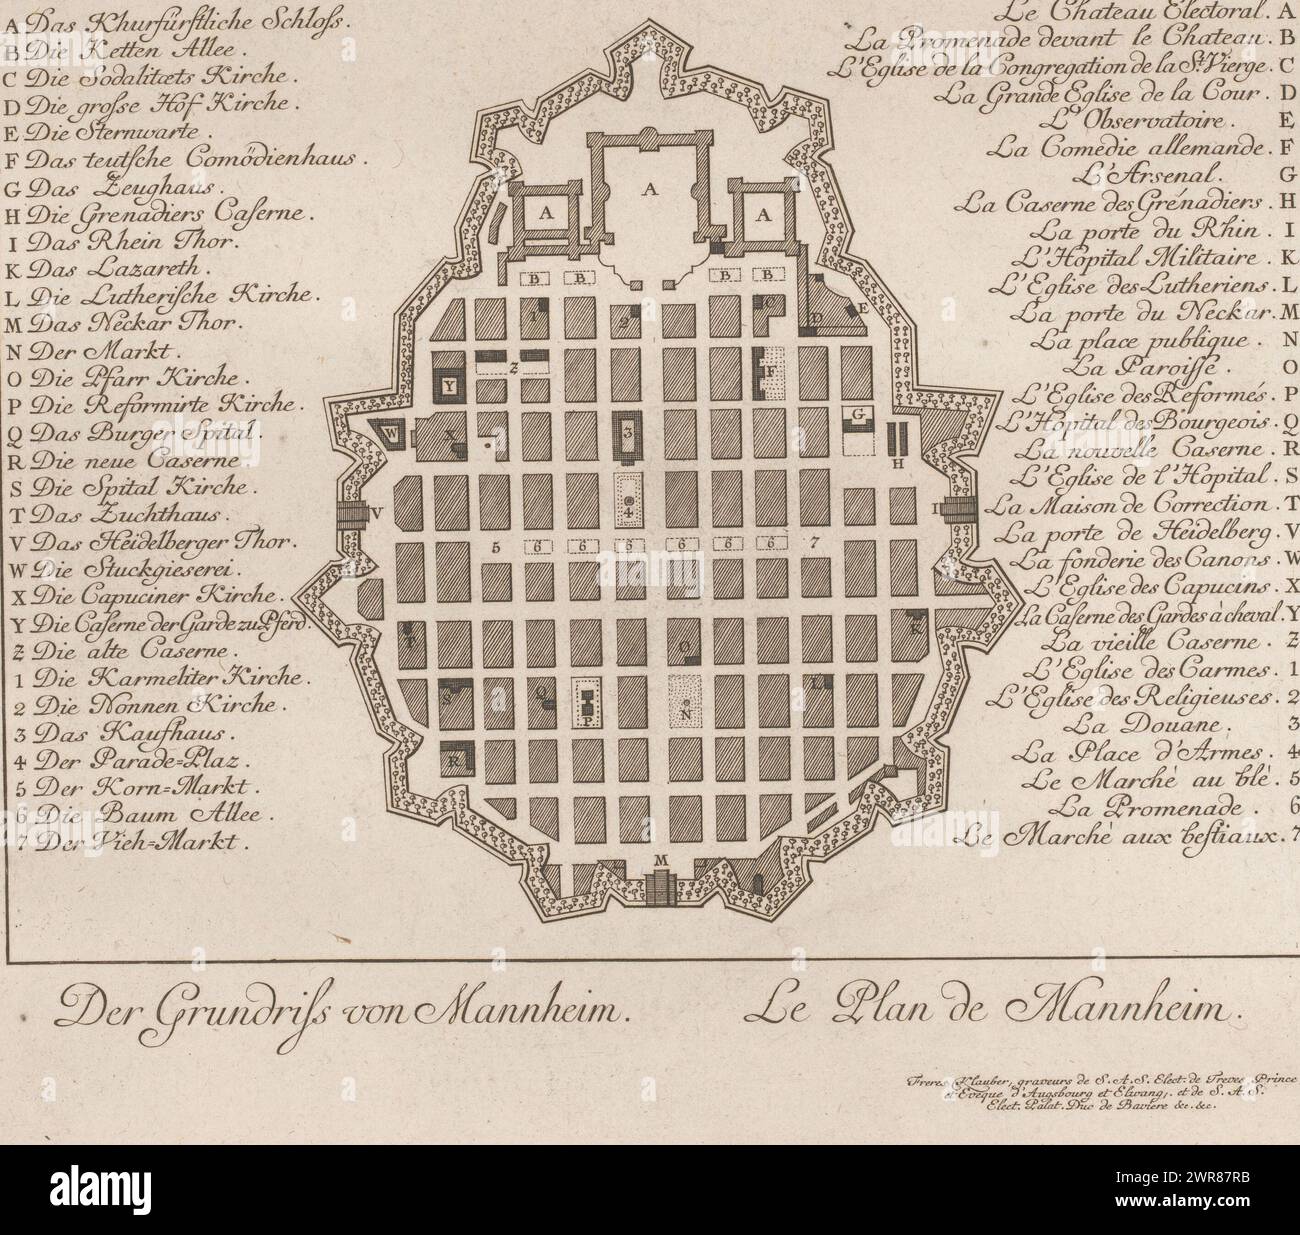 A Das Khurfürſtliche Schloſs.
B Die Ketten Allee.
C Die Sodalitæts Kirche.
D Die groſse Hof Kirche.
E Die Sternwarte.
F Das teutſche Comödienhaus.
G Das Zeughaus.
H Die Grenadiers Caſerne.
I Das Rhein Thor.
K Das Lazareth.
L Die Lutheriſche Kirche.
M Das Neckar Thor.
N Der Markt.
O Die Pfarr Kirche.
P Die Reformirte Kirche.
Q Das Burger Spital.
R Die neue Caserne.
S Die Spital Kirche.
T Das Zuchthaus.
V Das Heidelberger Thor.
W Die Stuckgieserei.
X Die Capuciner Kirche.
Y Die Caſerne der Garde zu Pferd.
Z Die alte Caserne.
1 Die Karmeliter Kirche.
2 Die Nonnen Kirche.
3 Das Kaufhaus.
4 Der Parade=Plaz.
5 Der Korn=Markt.
6 Die Baum Allee.
7 Der Vieh=Markt.
Le Chateau Electoral. A
La Promenade devant le Chateau. B
L'Eglise de la Congregation de la St. Vierge. C
La Grande Eglise de la Cour. D
L'Observatoire. E
La Comedie allemande. F
L'Arsenal. G
La Caserne des Grénadiers. H
La porte du Rhin. I
L'Hôpital Militaire. K
L'Eglise des Lutheriens. L
La porte du Neckar. M
La place publique. N
La Paroiſſe. O
L'Eglise des Reformés. P
L'Hôpital des Bourgeois. Q
La nouvelle Caserne. R
L'Eglise de l'Hopital. S
La Maison de Correction. T
La porte de Heidelberg. V
La fonderie des Canons. W
L'Eglise des Capucins. X
La Caſerne des Gardes à cheval. Y
La vieille Caserne. Z
L'Eglise des Carmes. 1
L'Eglise des Religieuses. 2
La Douane. 3
La Place d'Armes. 4
Le Marché au blé. 5
La Promenade. 6
Le Marché aux beſtiaux. 7
A
A A
B B B B
1 2 C D E
Y Z F
W X 3 G H
V 4 I
5 6 6 6 6 6 6 7
T O K
S Q P N L
R
M
Der Grundriſs von Mannheim.
Le Plan de Mannheim.
Freres Klauber, graveurs de S. A. S. Elect. de Treves Prince
et Eveque d'Augsbourg et Elwang,. et de S. A. S.
Elect. Palat. Duc de Baviere &c. &c.
alamy
Image ID: 2WR87RB
www.alamy.com